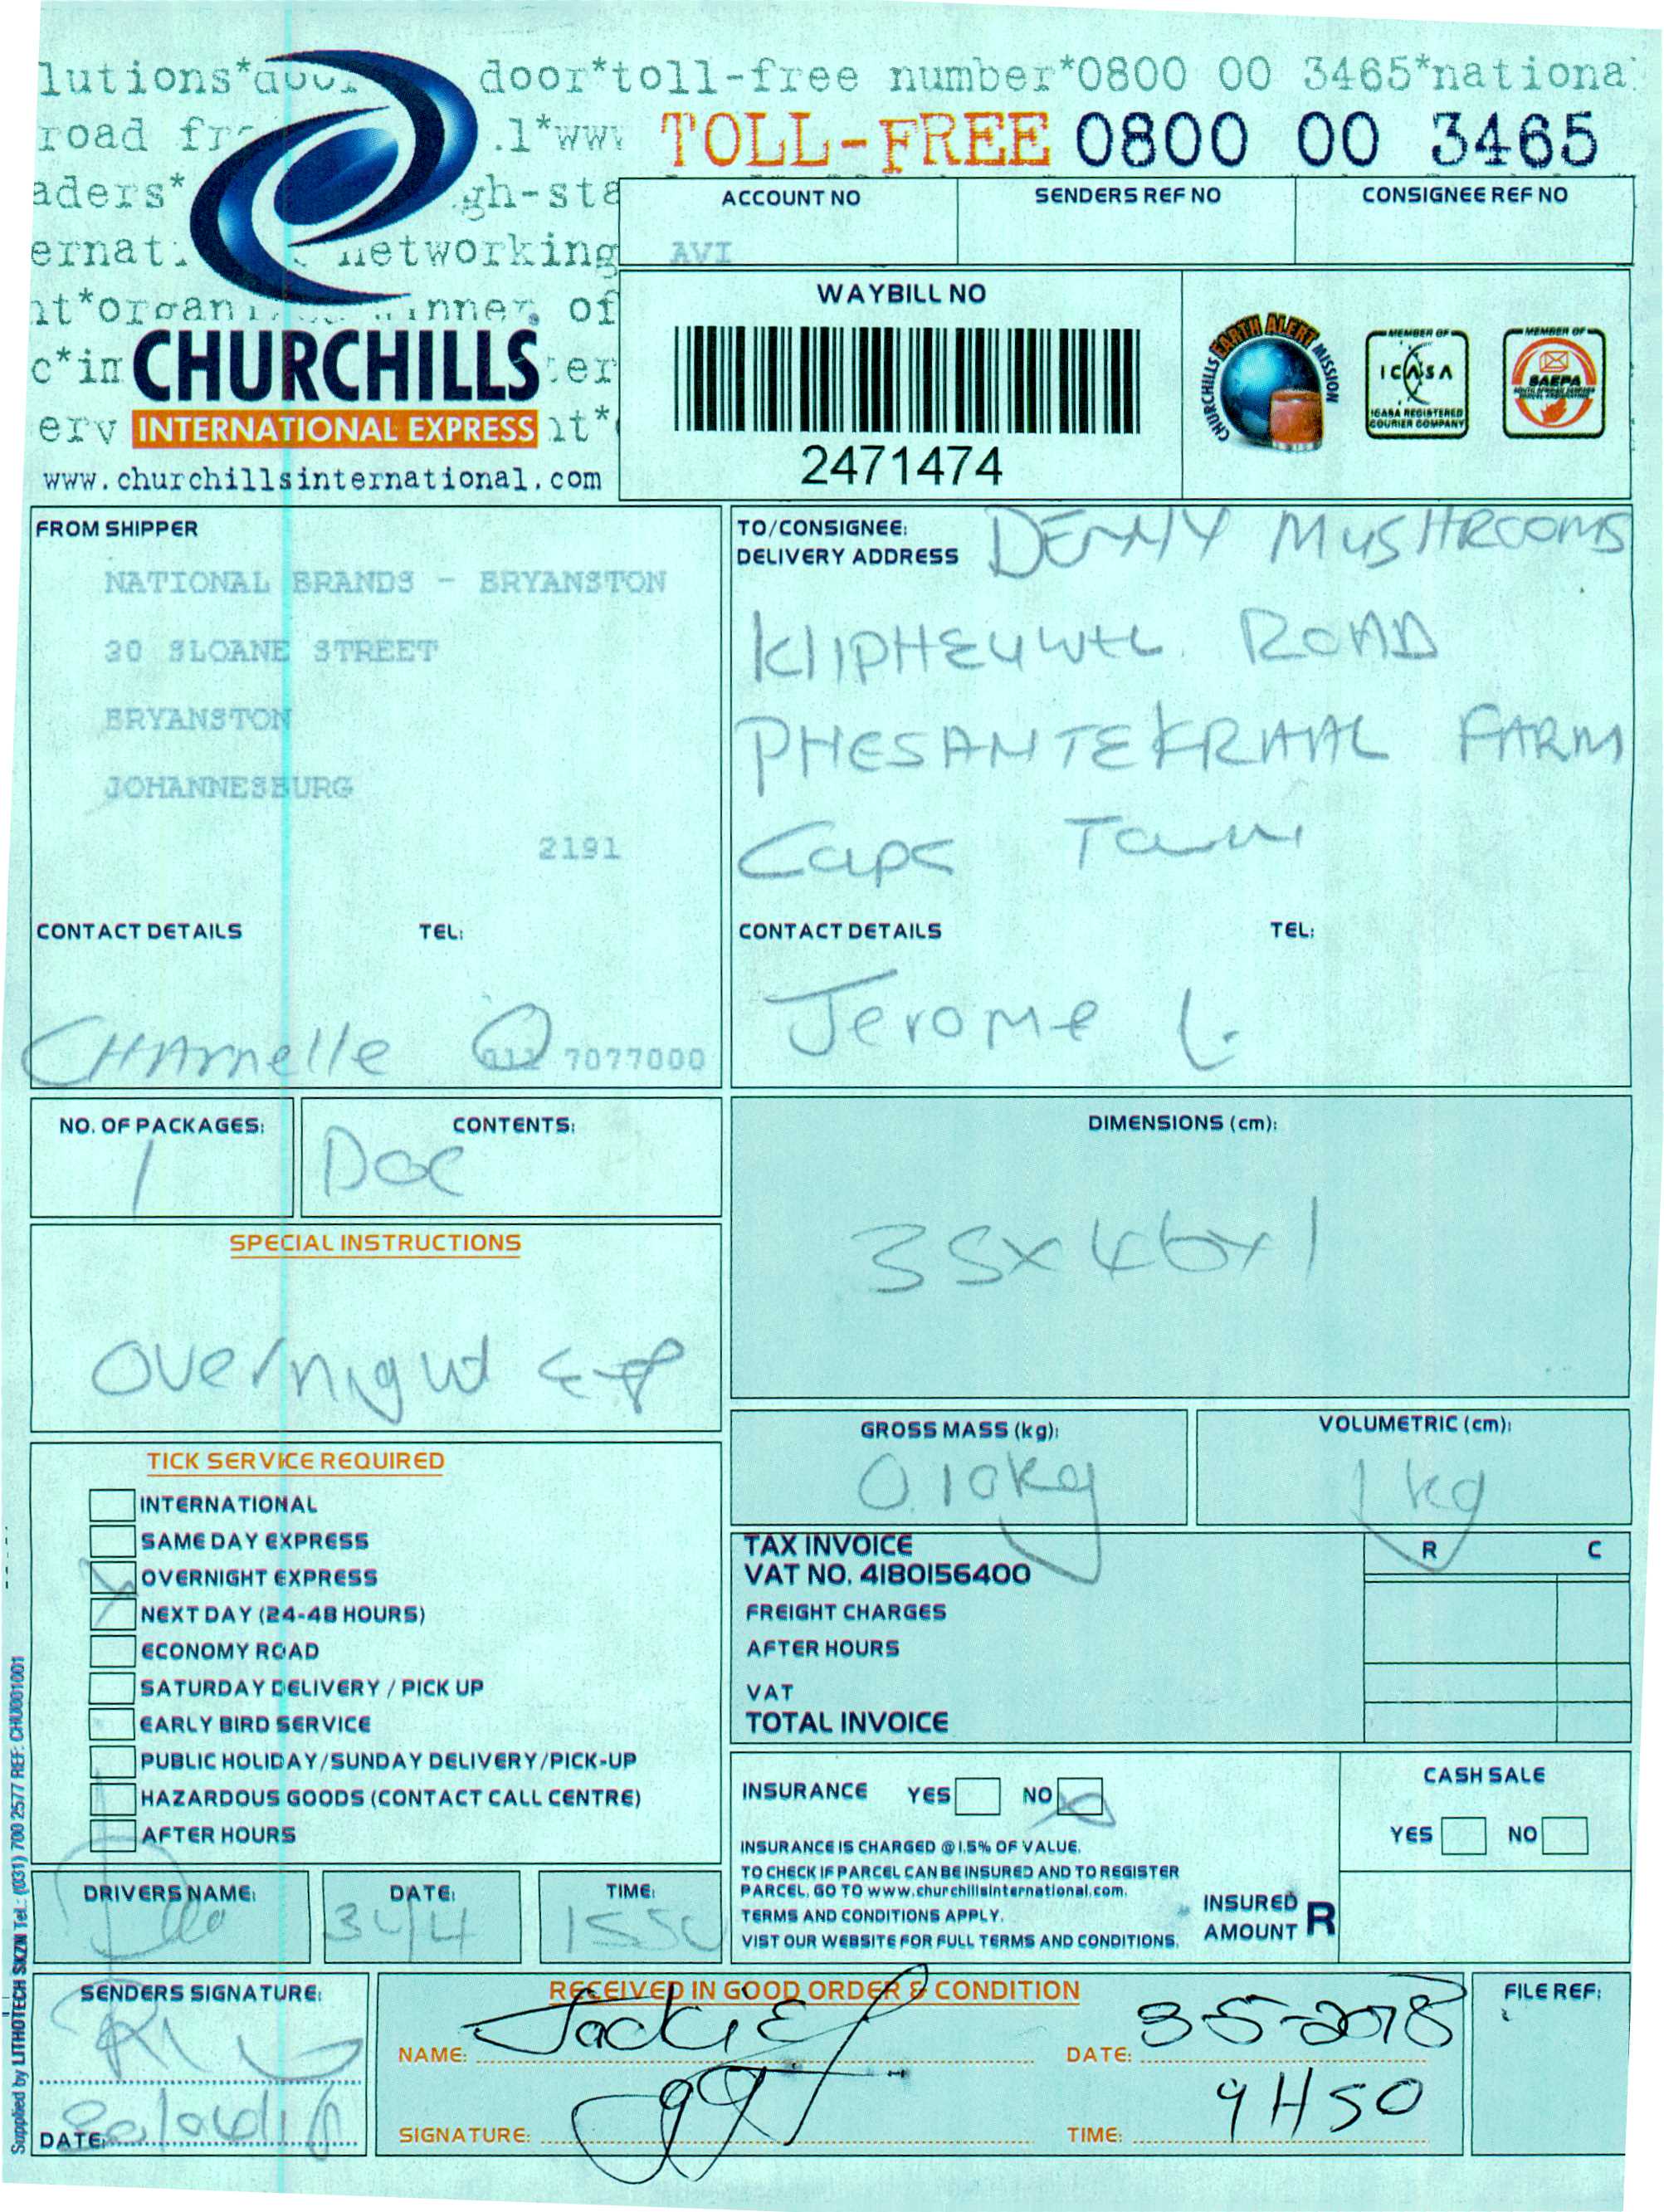 lutions*door door*toll-free number*0800 00 3465*national
road fr .l*www TOLL-FREE 0800 00 3465
aders* gh-sta
ernat networking
nt*organ inner of
c*in ter
erv nt*
CHURCHILLS
INTERNATIONAL EXPRESS
www.churchillsinternational.com
ACCOUNT NO SENDERS REF NO CONSIGNEE REF NO
AVI
WAYBILL NO
2471474
CHURCHILLS EARTH ALERT MISSION
MEMBER OF
ICASA
ICASA REGISTERED
COURIER COMPANY
MEMBER OF
SAEPA
FROM SHIPPER
NATIONAL BRANDS - BRYANSTON
30 SLOANE STREET
BRYANSTON
JOHANNESBURG
2191
CONTACT DETAILS TEL:
CHArnelle O 011 7077000
TO/CONSIGNEE:
DELIVERY ADDRESS DENNY MUSHROOMS
KlIPHEUWEL ROAD
PHESANTEKRAAL FARM
Cape Town
CONTACT DETAILS TEL:
Jerome L.
NO. OF PACKAGES: CONTENTS:
1 Doc
SPECIAL INSTRUCTIONS
Overnight
DIMENSIONS (cm):
35x46x1
GROSS MASS (kg): VOLUMETRIC (cm):
0.10kg 1kg
TICK SERVICE REQUIRED
INTERNATIONAL
SAME DAY EXPRESS
OVERNIGHT EXPRESS
NEXT DAY (24-48 HOURS)
ECONOMY ROAD
SATURDAY DELIVERY / PICK UP
EARLY BIRD SERVICE
PUBLIC HOLIDAY/SUNDAY DELIVERY/PICK-UP
HAZARDOUS GOODS (CONTACT CALL CENTRE)
AFTER HOURS
TAX INVOICE R C
VAT NO. 4180156400
FREIGHT CHARGES
AFTER HOURS
VAT
TOTAL INVOICE
INSURANCE YES NO
INSURANCE IS CHARGED @ 1.5% OF VALUE.
TO CHECK IF PARCEL CAN BE INSURED AND TO REGISTER
PARCEL, GO TO www.churchillsinternational.com.
TERMS AND CONDITIONS APPLY.
VIST OUR WEBSITE FOR FULL TERMS AND CONDITIONS.
INSURED
AMOUNT R
CASH SALE
YES NO
DRIVERS NAME: DATE: TIME:
1550
SENDERS SIGNATURE:
DATE:
RECEIVED IN GOOD ORDER & CONDITION
NAME: Jackie DATE: 3-5-2018
SIGNATURE: TIME: 9H50
FILE REF:
Supplied by LITHOTECH SKZN Tel.: (031) 700 2577 REF: CHU001001